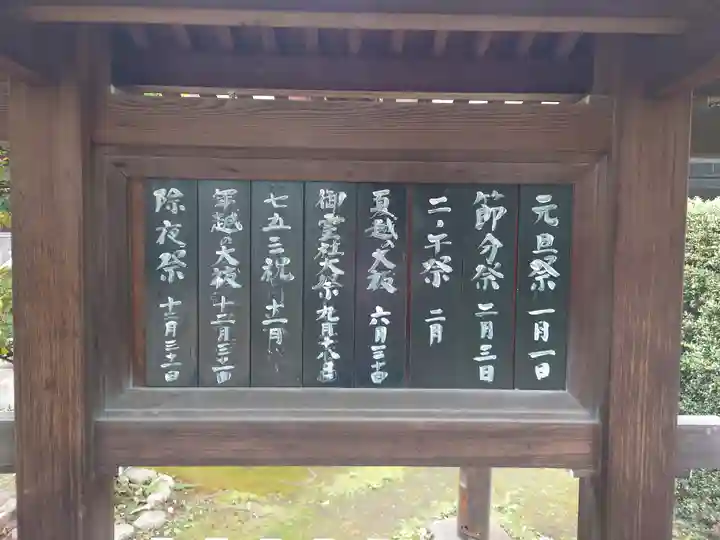 元旦祭 一月一日
節分祭 二月三日
二ノ午祭 二月
夏越の大祓 六月三十日
御霊社大祭 九月十八日
七五三祝 十一月
年越の大祓 十二月三十一日
除夜祭 十二月三十一日